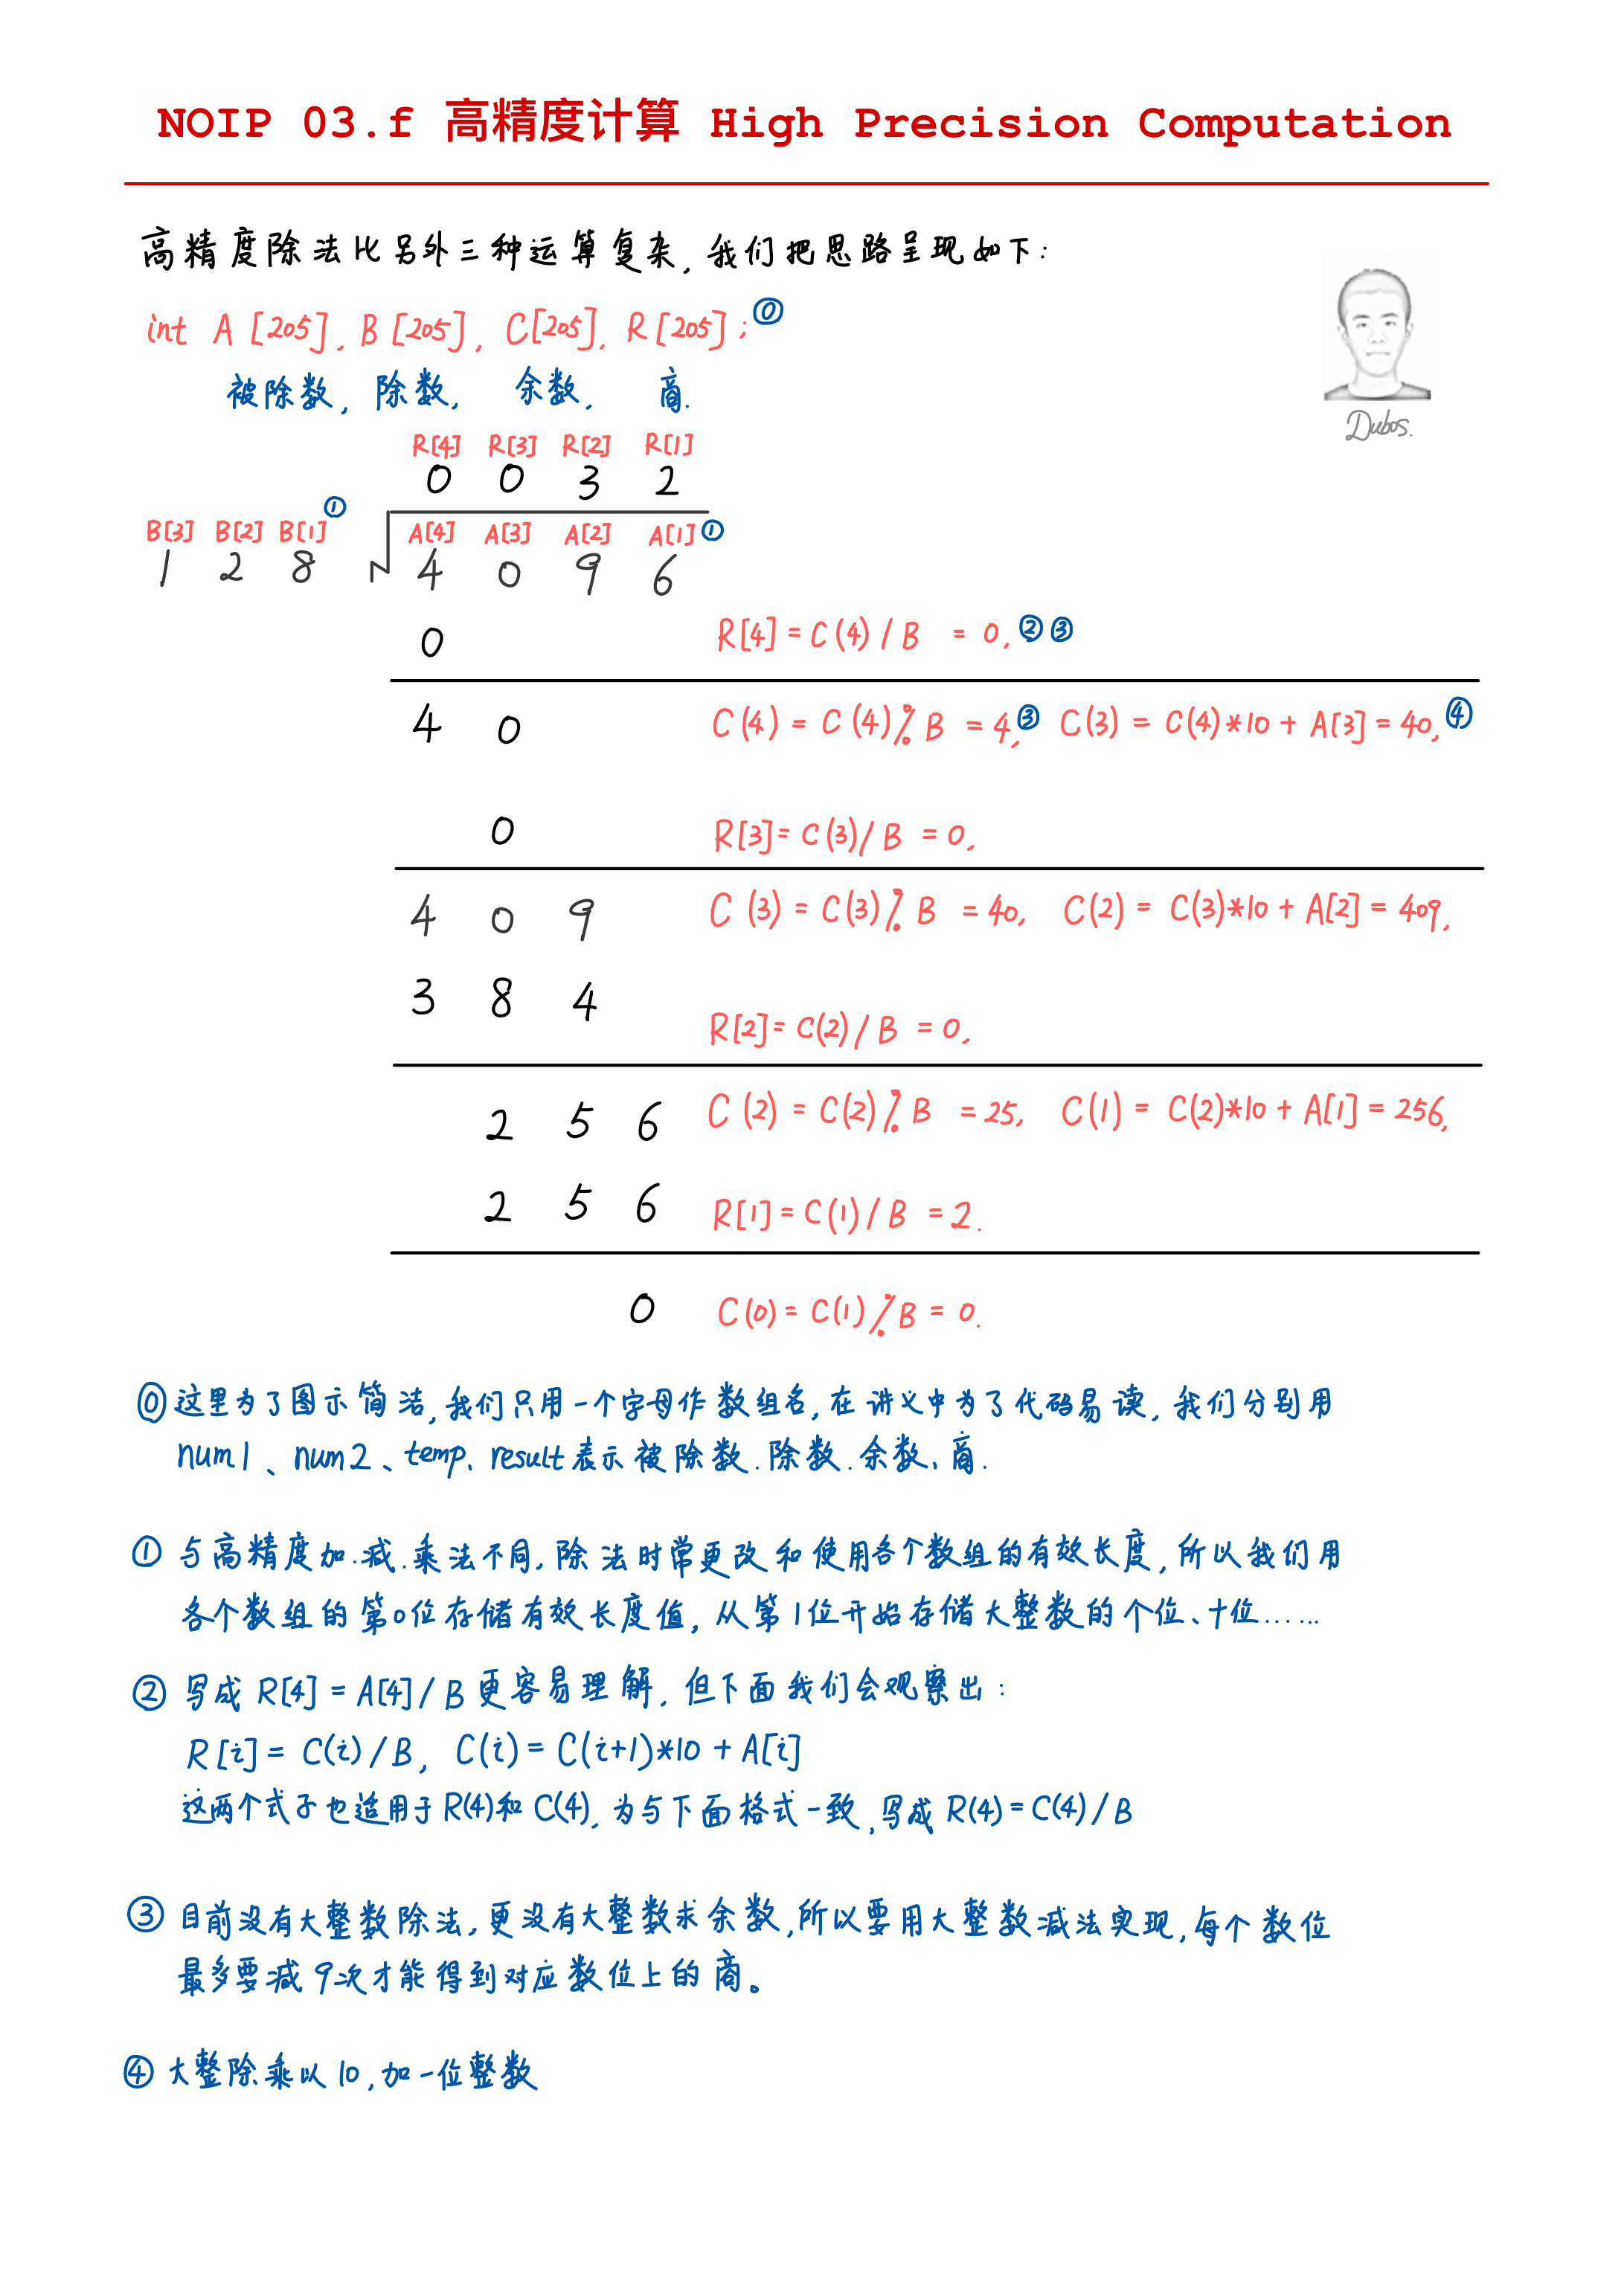 NOIP 03.f 高精度计算 High Precision Computation
高精度除法比另外三种运算复杂，我们把思路呈现如下：
int A[205], B[205], C[205], R[205]; ⓪
被除数, 除数, 余数, 商.
Dubos.
R[4] R[3] R[2] R[1]
0 0 3 2
B[3] B[2] B[1] ① A[4] A[3] A[2] A[1] ①
1 2 8 4 0 9 6
0 R[4] = C(4) / B = 0, ② ③
4 0 C(4) = C(4) % B = 4, ③ C(3) = C(4)*10 + A[3] = 40, ④
0 R[3] = C(3) / B = 0,
4 0 9 C(3) = C(3) % B = 40, C(2) = C(3)*10 + A[2] = 409,
3 8 4 R[2] = C(2) / B = 0,
2 5 6 C(2) = C(2) % B = 25, C(1) = C(2)*10 + A[1] = 256,
2 5 6 R[1] = C(1) / B = 2.
0 C(0) = C(1) % B = 0.
⓪ 这里为了图示简洁, 我们只用一个字母作数组名, 在讲义中为了代码易读, 我们分别用
num1、num2、temp、result表示被除数、除数、余数、商.
① 与高精度加、减、乘法不同, 除法时常更改和使用各个数组的有效长度, 所以我们用
各个数组的第0位存储有效长度值, 从第1位开始存储大整数的个位、十位……
② 写成 R[4] = A[4] / B 更容易理解, 但下面我们会观察出：
R[i] = C(i) / B, C(i) = C(i+1)*10 + A[i]
这两个式子也适用于 R(4)和 C(4), 为与下面格式一致, 写成 R(4) = C(4) / B
③ 目前没有大整数除法, 更没有大整数求余数, 所以要用大整数减法实现, 每个数位
最多要减9次才能得到对应数位上的商。
④ 大整除乘以10, 加一位整数